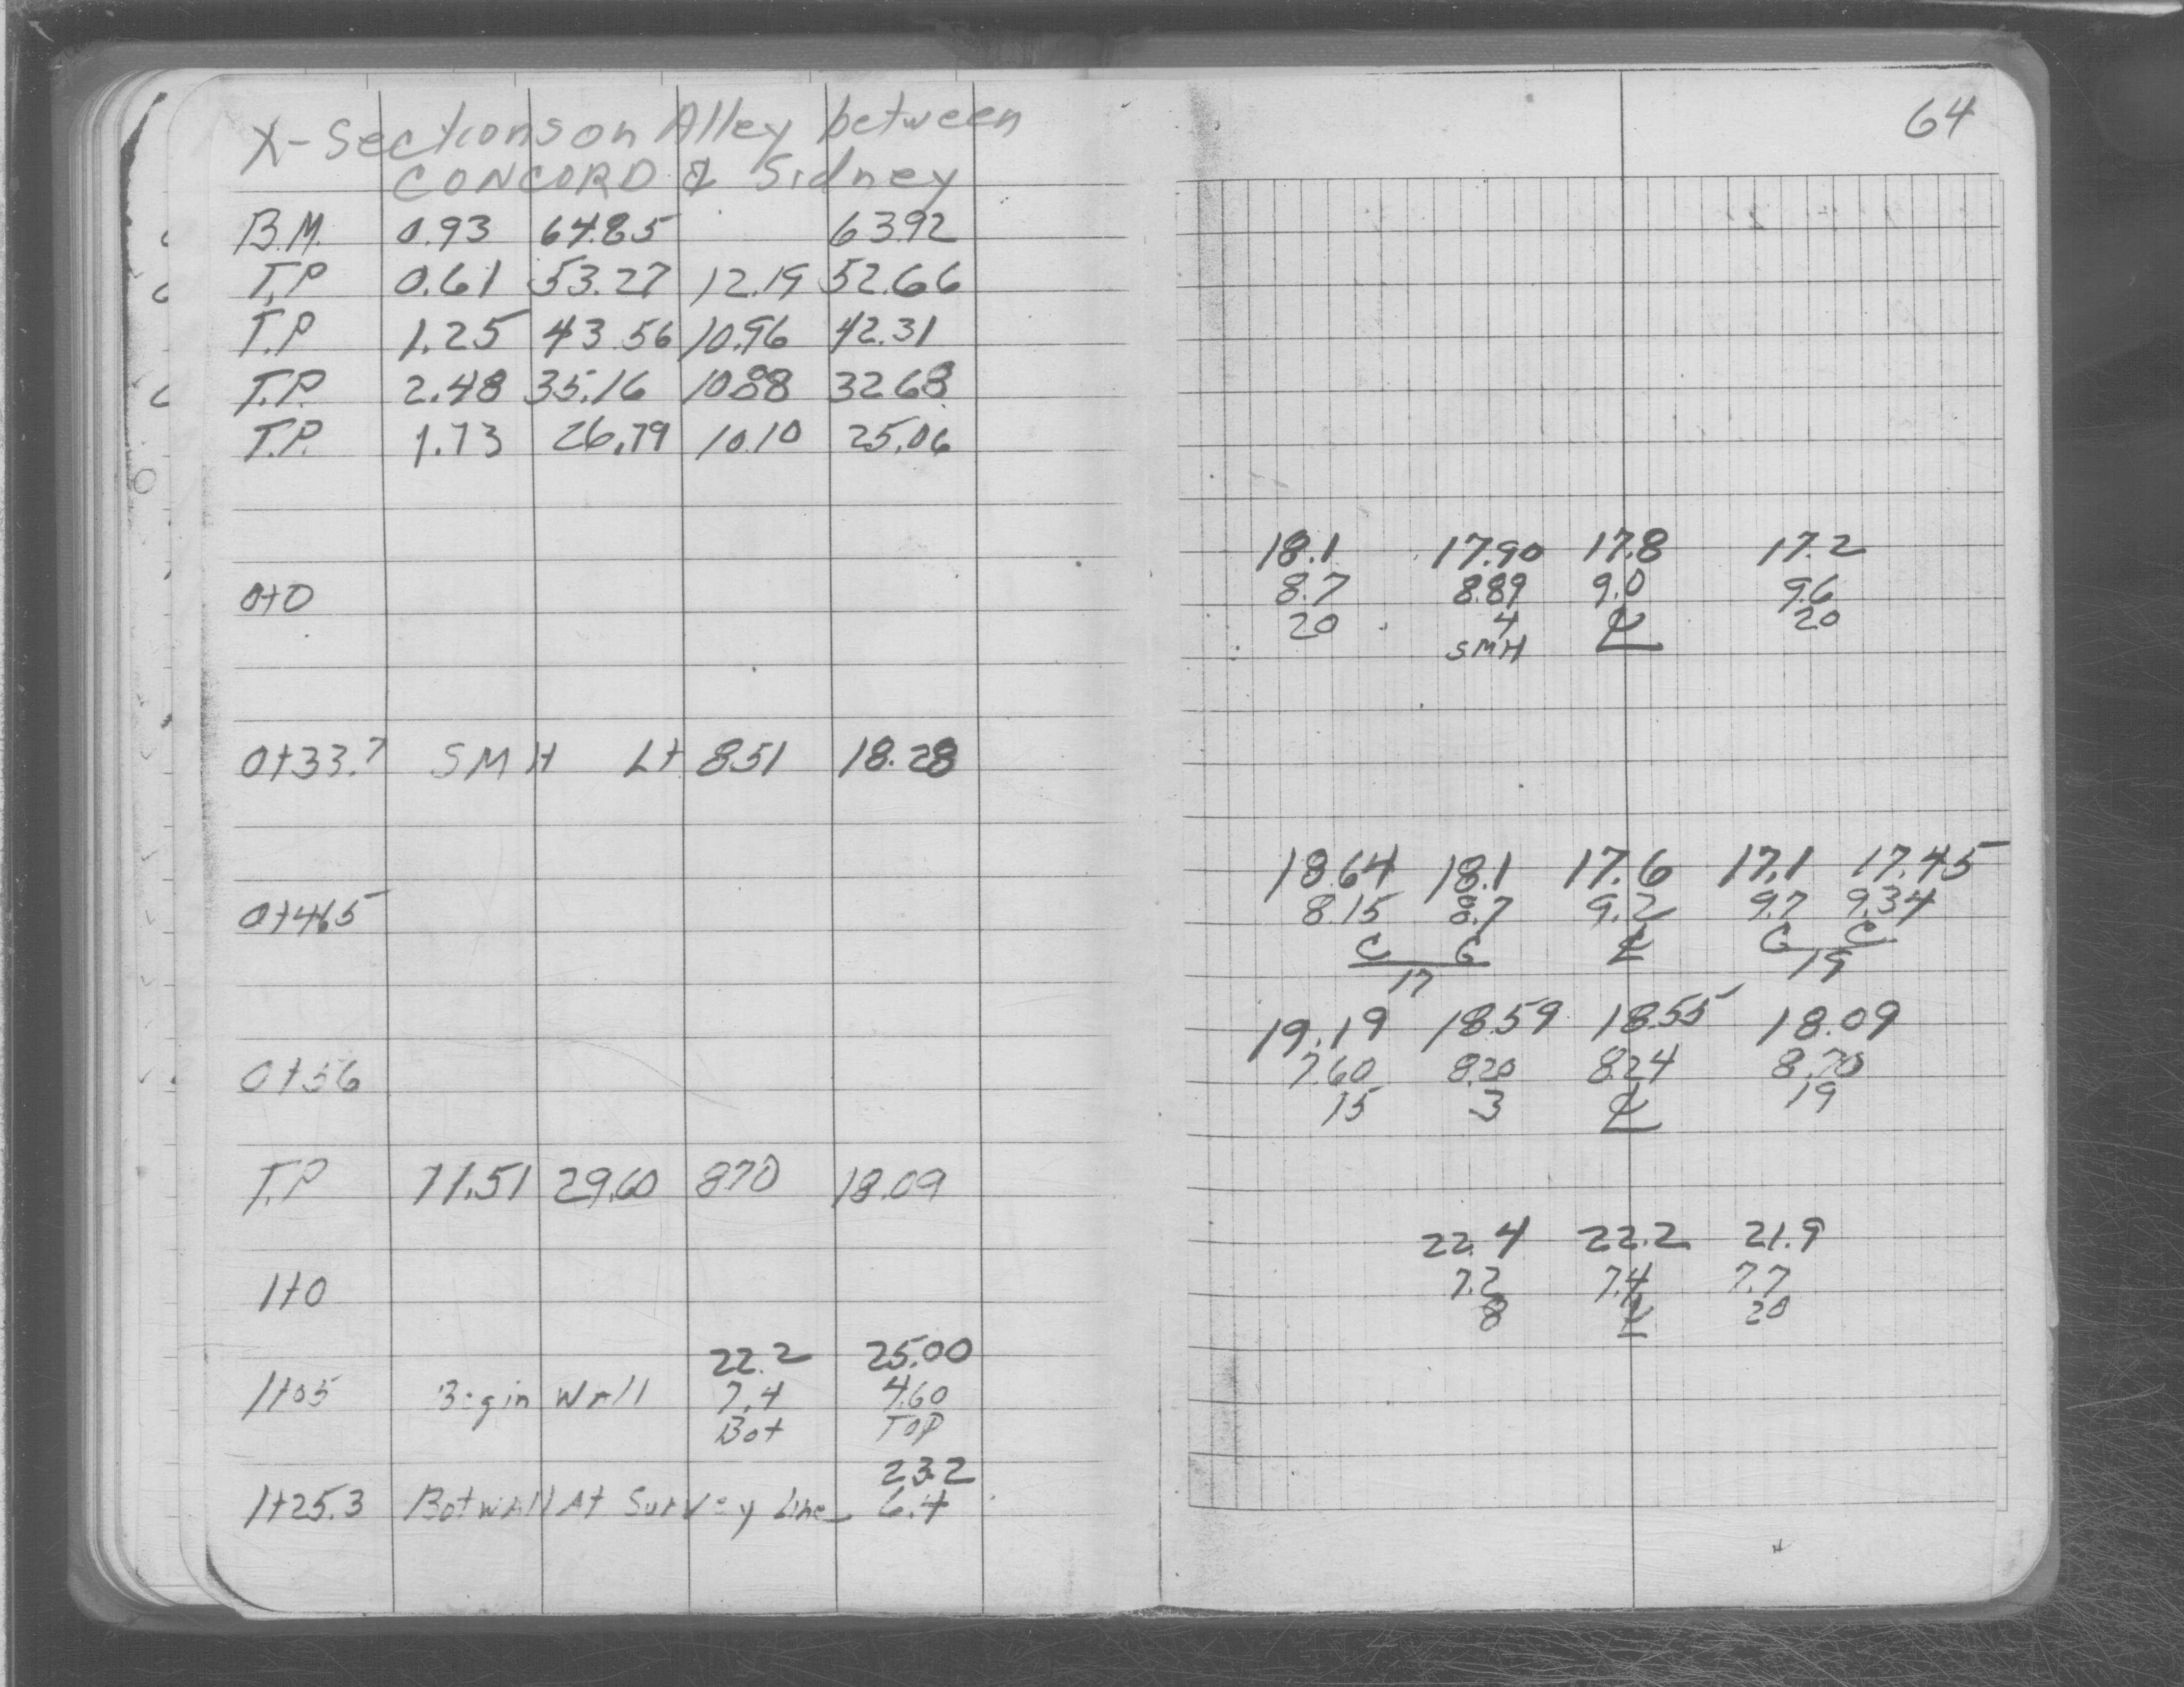 X-Sections on Alley between
CONCORD & Sidney
B.M. 0.93 64.85 63.92
T.P 0.61 53.27 12.19 52.66
T.P 1.25 43.56 10.96 42.31
T.P. 2.48 35.16 10.88 32.68
T.P. 1.73 26.79 10.10 25.06
0+0
0+33.7 SMH Lt 8.51 18.28
0+46.5
0+56
T.P 11.51 29.60 8.70 18.09
1+0
22.2 25.00
1+05 Begin Wall 7.4 4.60
Bot TOP
23.2
1+25.3 Bot wall At Survey Line 6.4
64
18.1 17.90 17.8 17.2
8.7 8.89 9.0 9.6
20 4 ℄ 20
SMH
18.64 18.1 17.6 17.1 17.45
8.15 8.7 9.2 9.7 9.34
C G ℄ G C
17 19
19.19 18.59 18.55 18.09
7.60 8.20 8.24 8.70
15 3 ℄ 19
22.4 22.2 21.9
7.2 7.4 7.7
8 ℄ 20